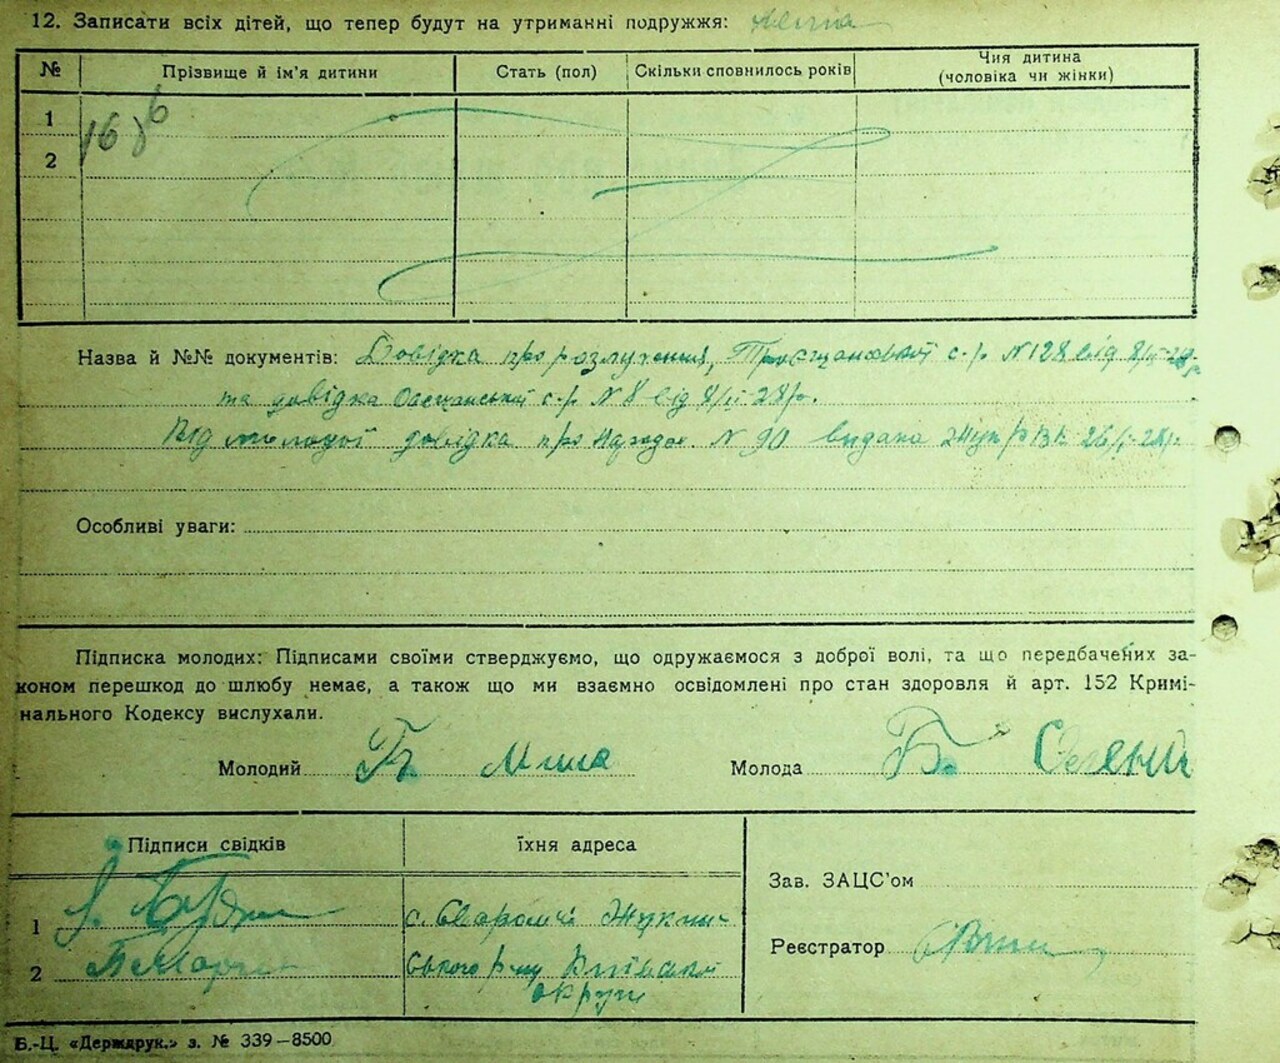 12. Записати всіх дітей, що тепер будут на утриманні подружжя: нема
№ Прізвище й ім'я дитини Стать (пол) Скільки сповнилось років Чия дитина (чоловіка чи жінки)
1
2
Назва й №№ документів: Довідка про розлучення, с-р N 128 від
та довідка с-р N 8 від 8/ІІ-28р.
Від молодої довідка про N 90 видана 26/І-28р.
Особливі уваги:
Підписка молодих: Підписами своїми стверджуємо, що одружаємося з доброї волі, та що передбачених за-
коном перешкод до шлюбу немає, а також що ми взаємно освідомлені про стан здоровля й арт. 152 Кримі-
нального Кодексу вислухали.
Молодий Миша Молода Б.
Підписи свідків їхня адреса
Зав. ЗАЦС'ом
1 с. Сваромьи Жукин-
Реєстратор
2 ського р-ну Київської
округи
Б.-Ц. «Держдрук.» з. № 339—8500